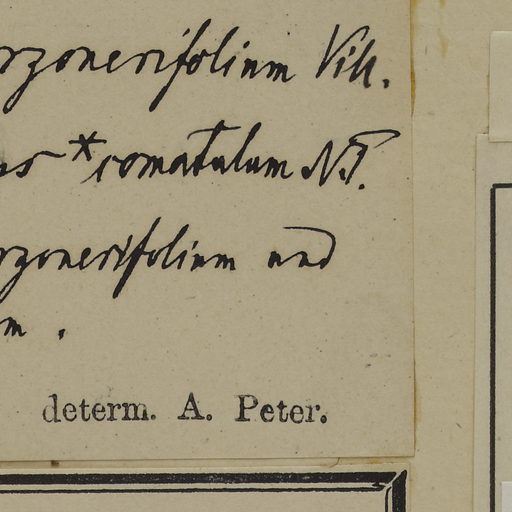 rzonerifolium Vill.
us *comatulum N.P.
rzonerifolium und
m .
determ. A. Peter.